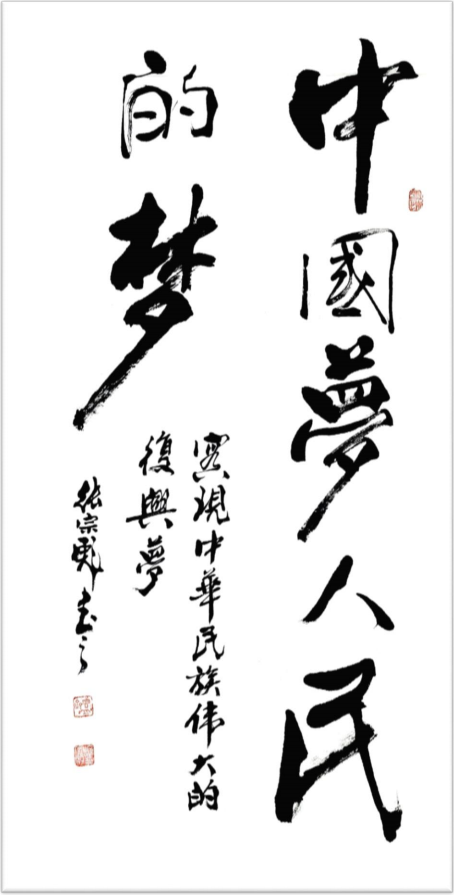 中國夢人民
的梦
實現中華民族伟大的
復興夢
張宗彪書